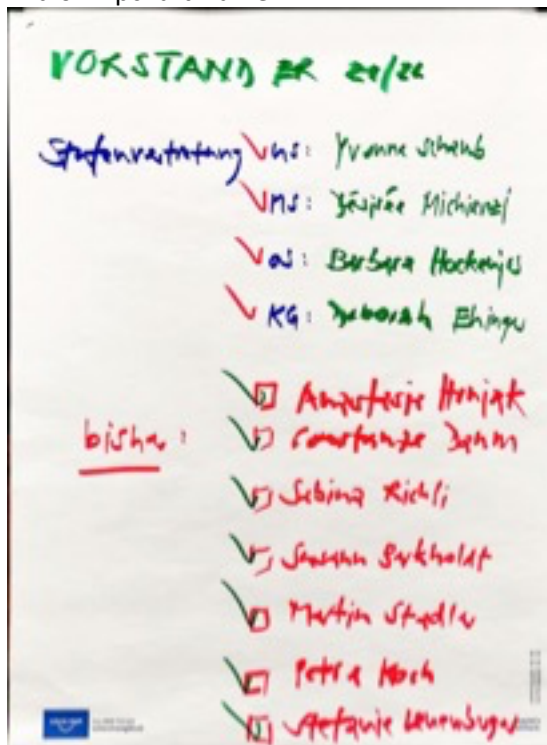 VORSTAND ER 21/22
Stufenvertretung US: Yvonne Schaub
MS: Désirée Michienzi
OS: Barbara Hockenjos
KG: Deborah Ehinger
Anastasie Hrnjak
bisher: Constanze Damm
Sabina Richli
Susann Burkholder
Martin Stadler
Petra Koch
Stefanie Leuenberger